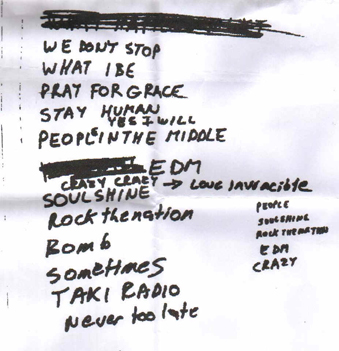 WE DON'T STOP
WHAT I BE
PRAY FOR GRACE
STAY HUMAN
YES I WILL
PEOPLE IN THE MIDDLE
EDM
CRAZY CRAZY → Love Invincible
SOULSHINE
Rock the nation
Bomb
Sometimes
TAKI RADIO
Never too late
PEOPLE
SOULSHINE
ROCK THE NATION
EDM
CRAZY